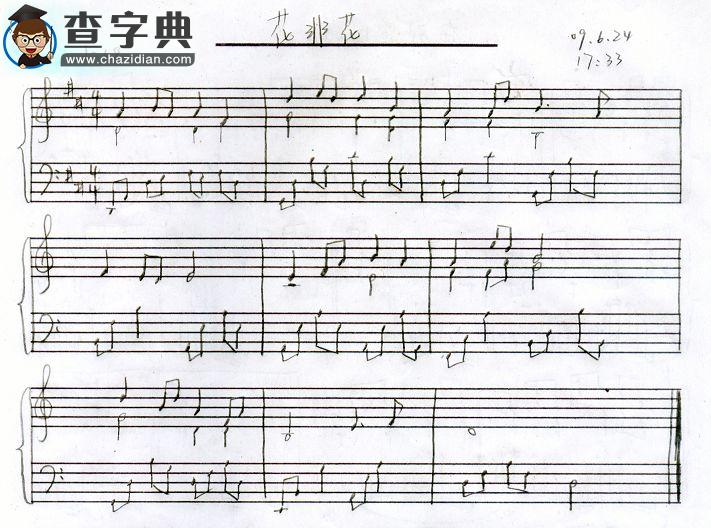 查字典
www.chazidian.com
花非花
09.6.24
17:33
4
4
4
4